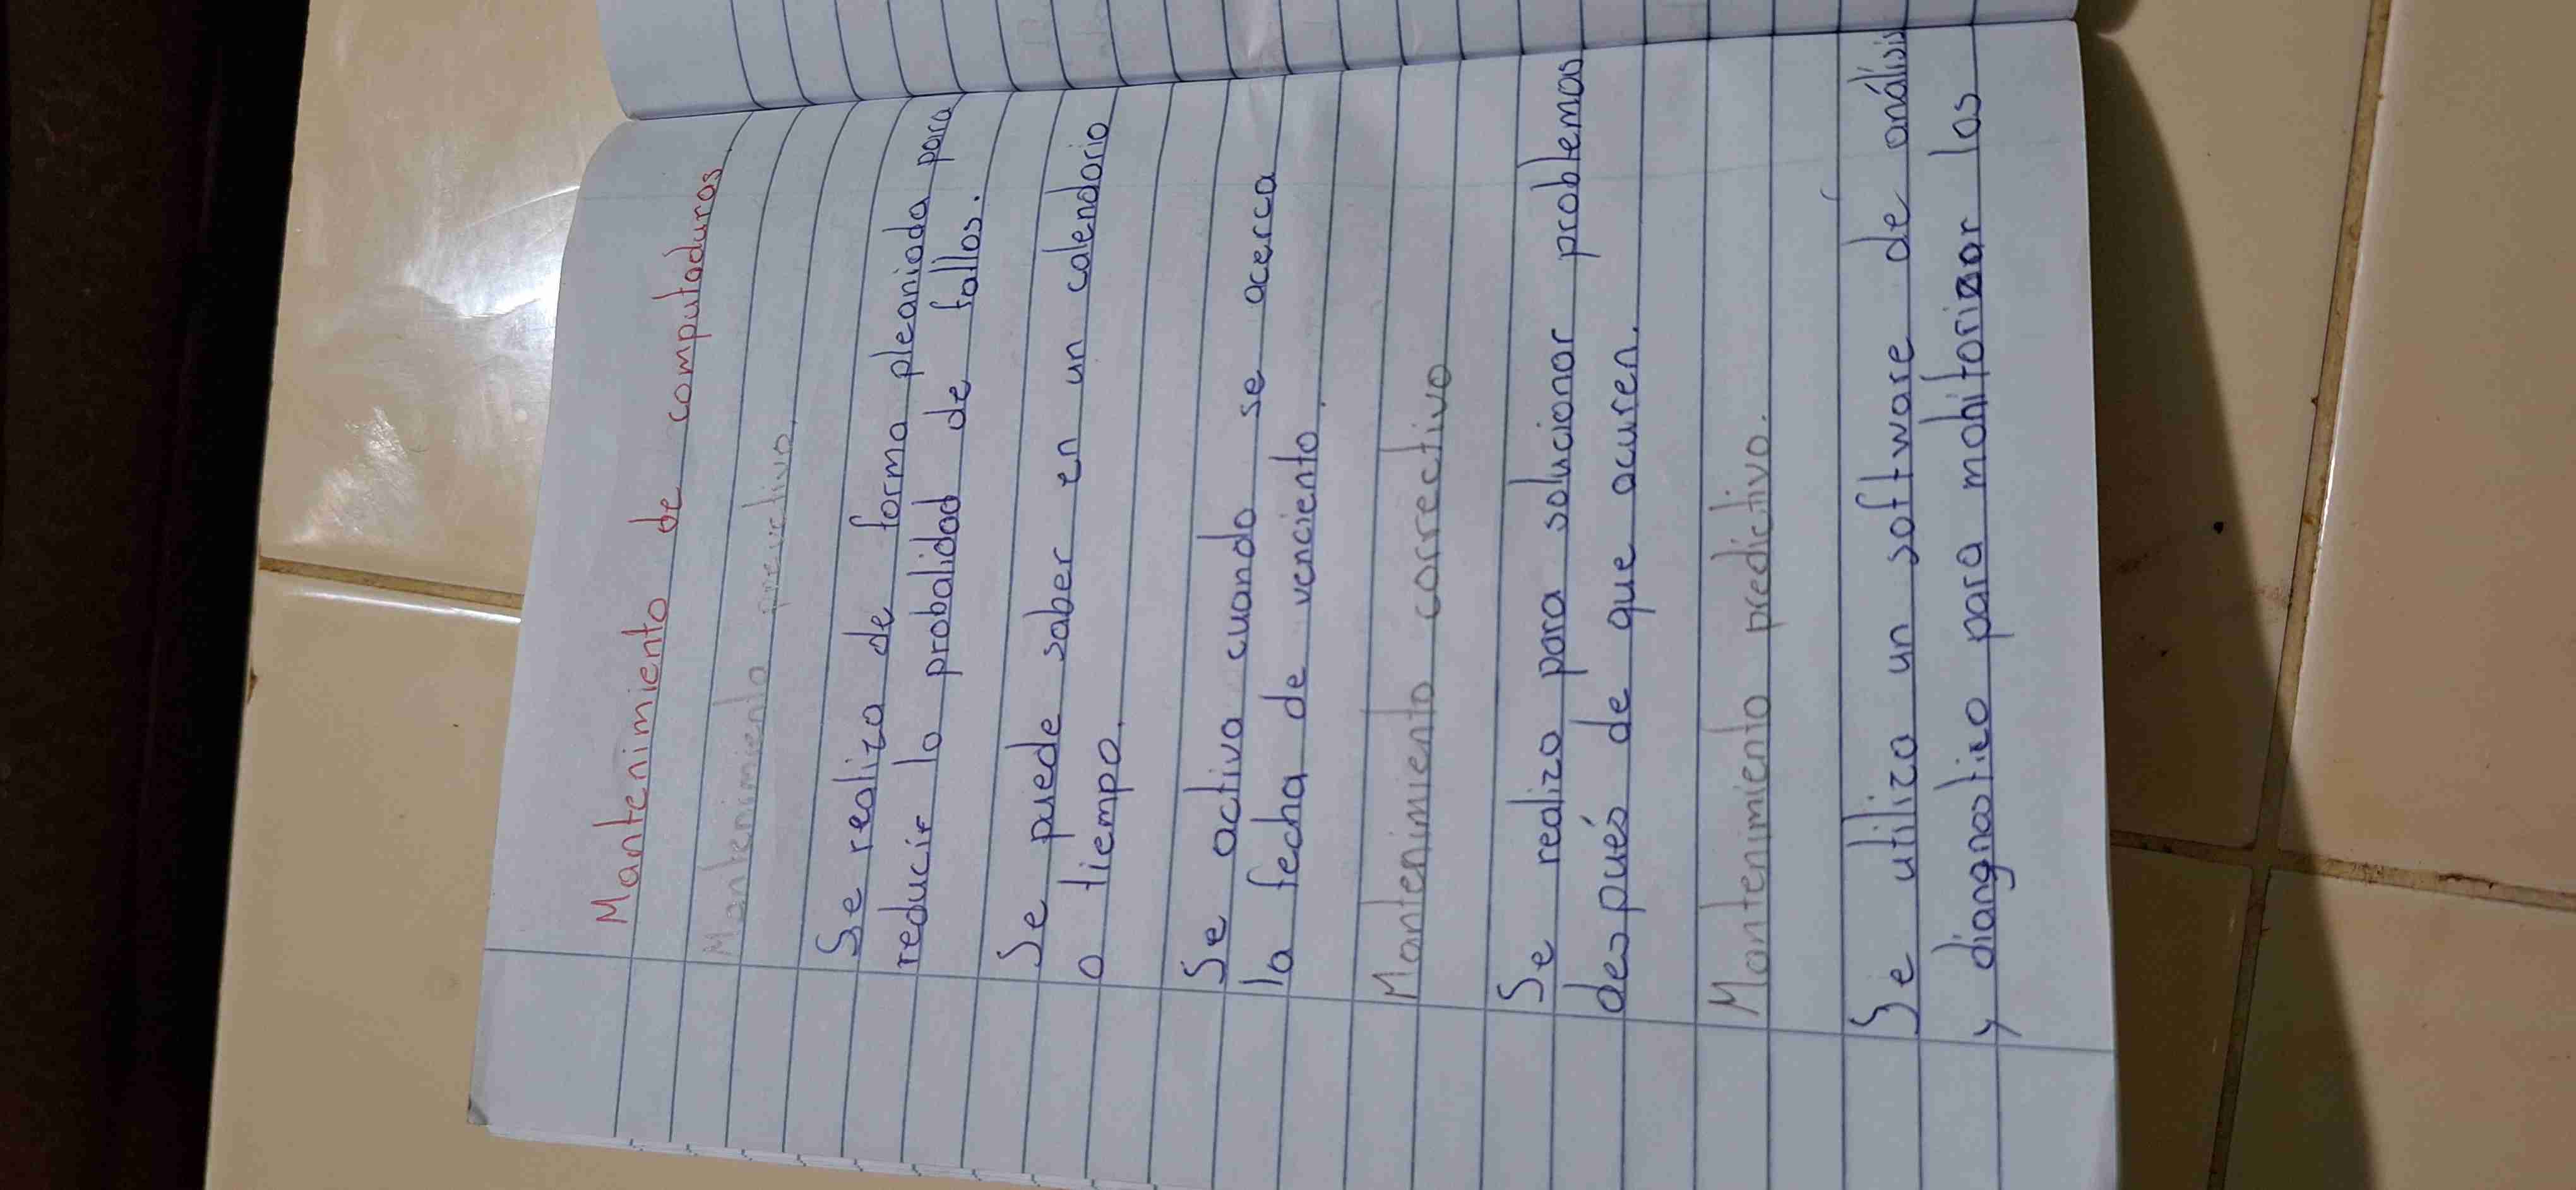 Mantenimiento de computaduras.
Mantenimiento preventivo.
Se realiza de forma pleaniada para
reducir la probalidad de fallos.
Se puede saber en un calendario
o tiempo.
Se activa cuando se acerca
la fecha de venciento.
Mantenimiento correctivo
Se realiza para solucionar problemas
después de que acuren.
Mantenimiento predictivo.
Se utiliza un software de análisis
y diangnostico para mohitorizar los